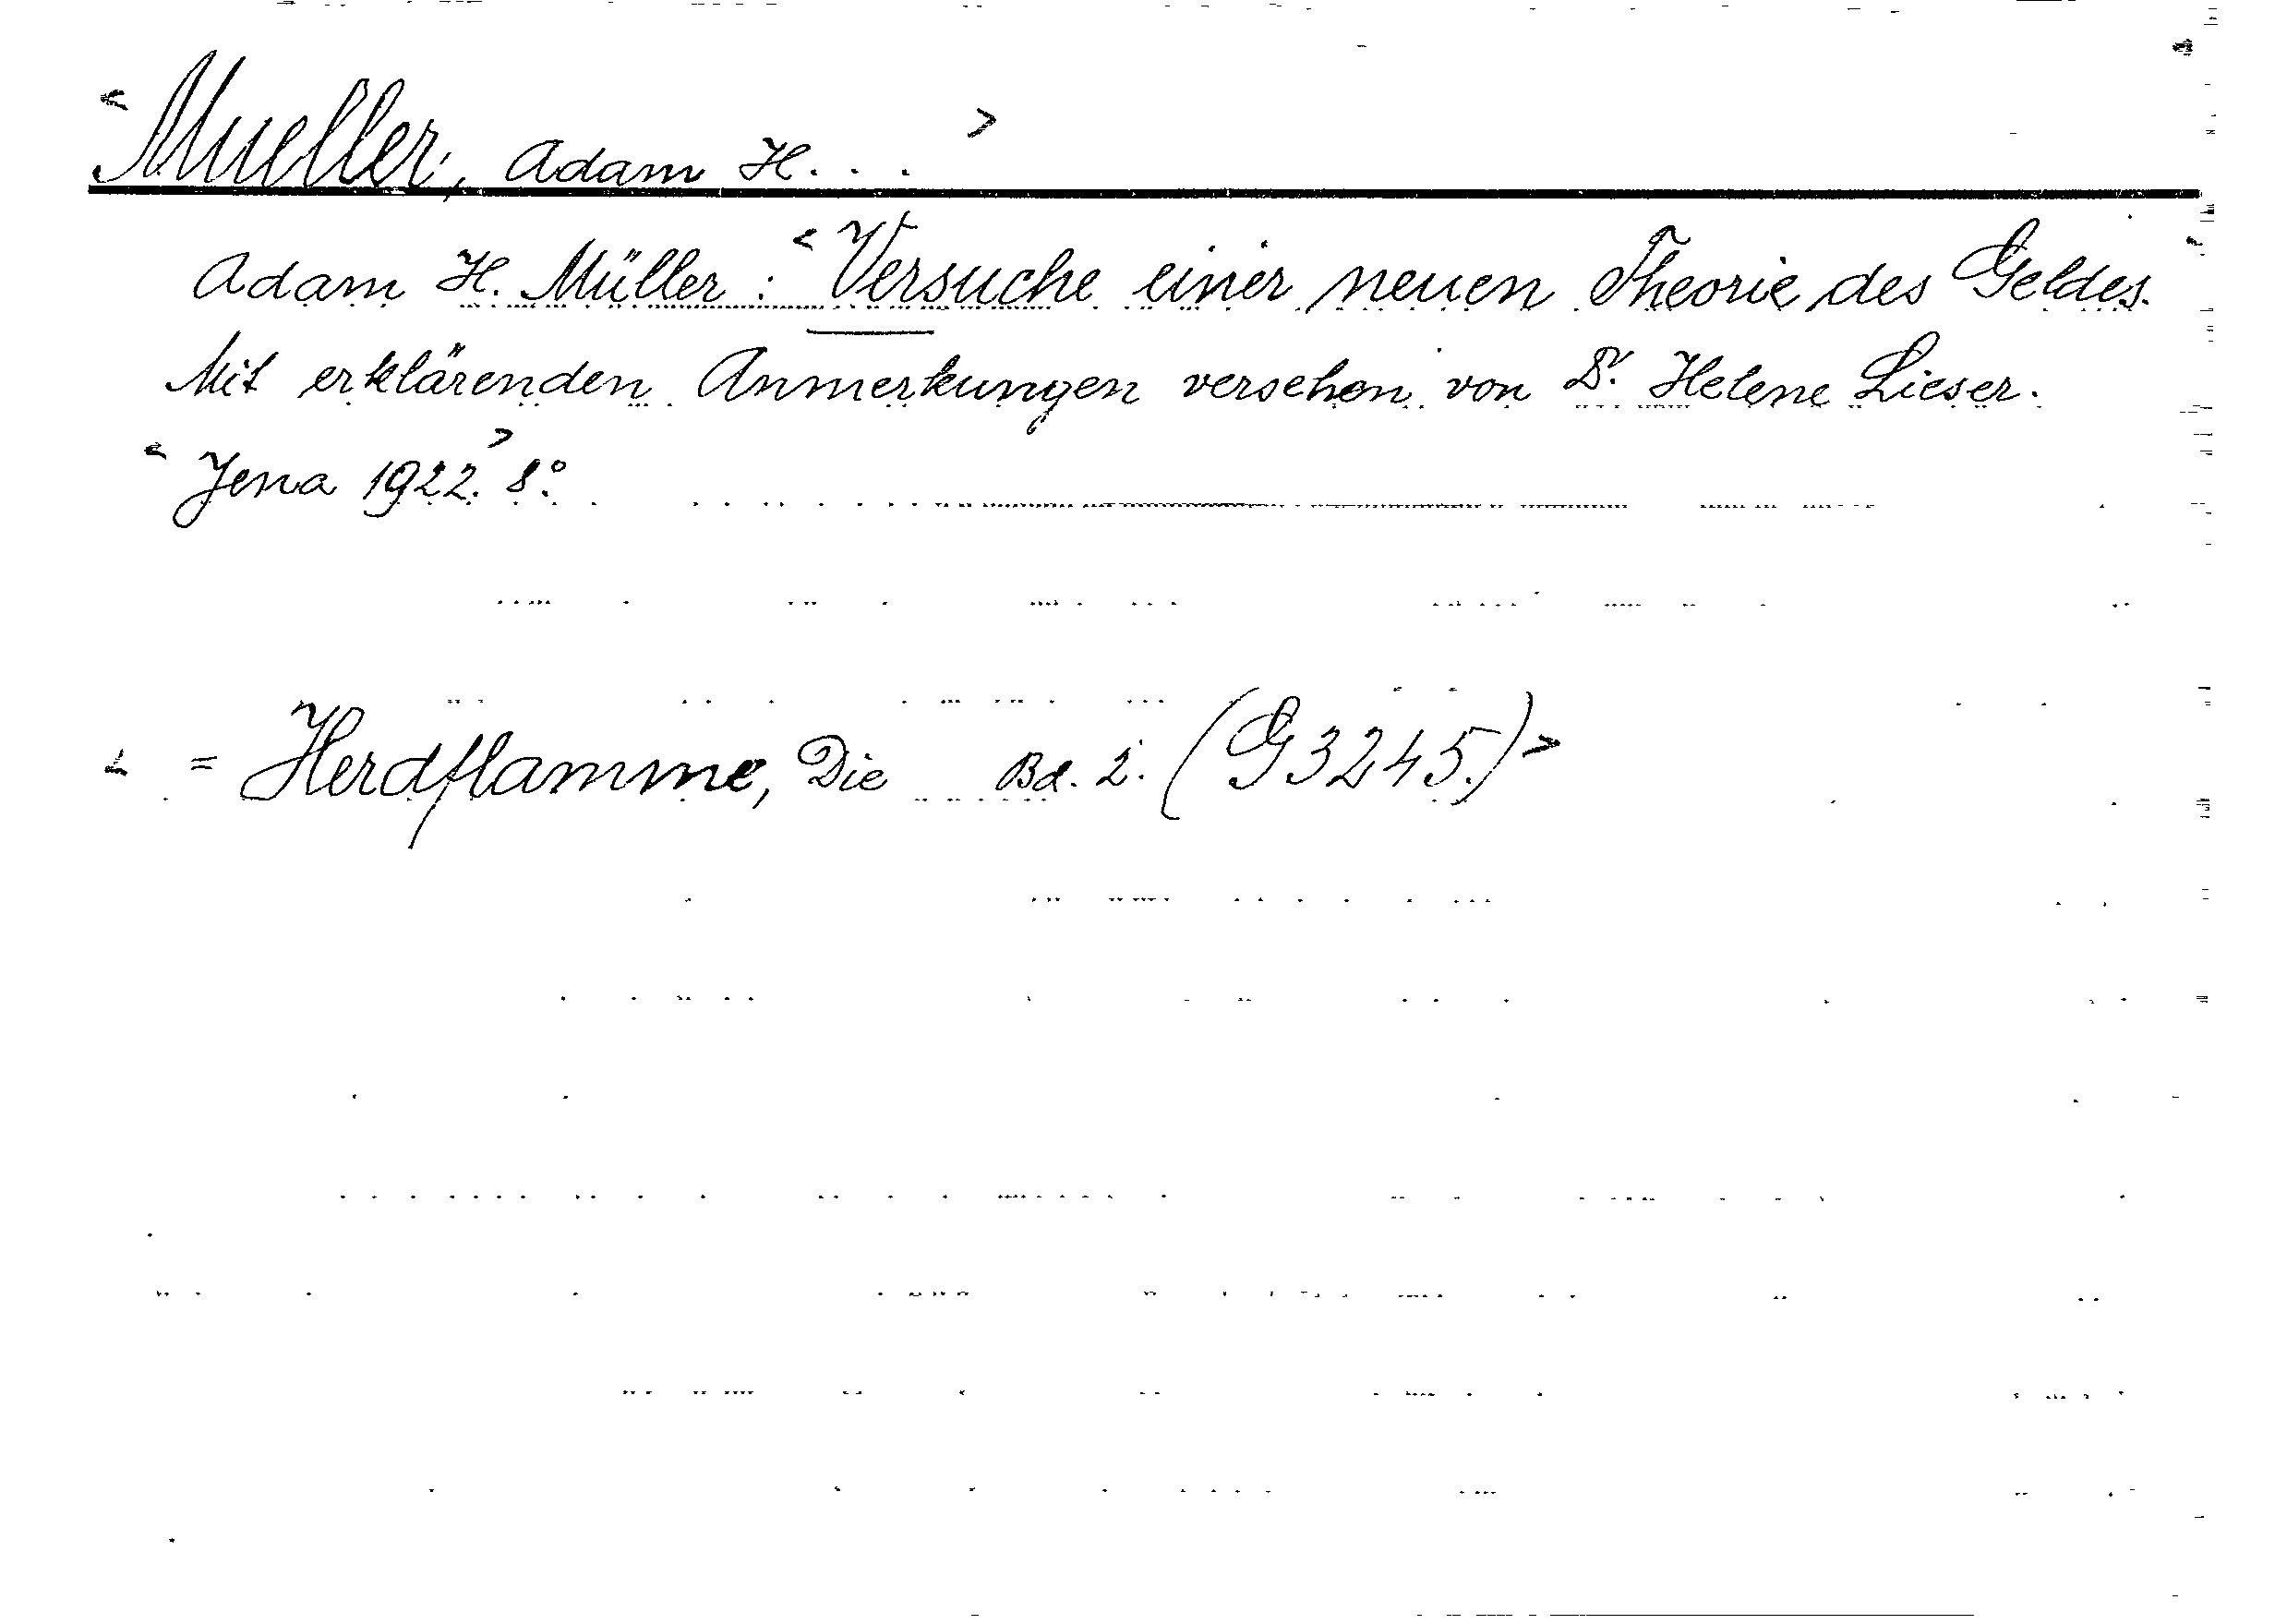 < Mueller, Adam H... >
Adam H. Müller: < Versuche einer neuen Theorie des Geldes.
Mit erklärenden Anmerkungen versehen von Dr. Helene Lieser.
< Jena 1922. > 8°.
< = Herdflamme, Die Bd. 2. (G3245.) >